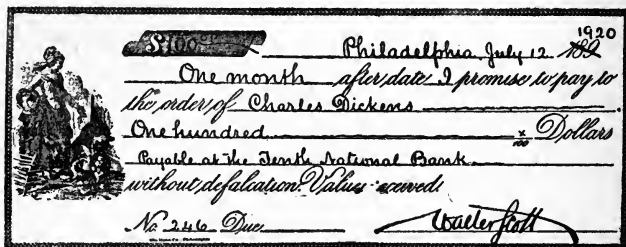 1920
$100 00/100 Philadelphia, July 12 189
One month after date I promise to pay to
the order of Charles Dickens
One hundred x/100 Dollars
Payable at the Tenth National Bank
without defalcation. Value received
No. 246 Due Walter Scott